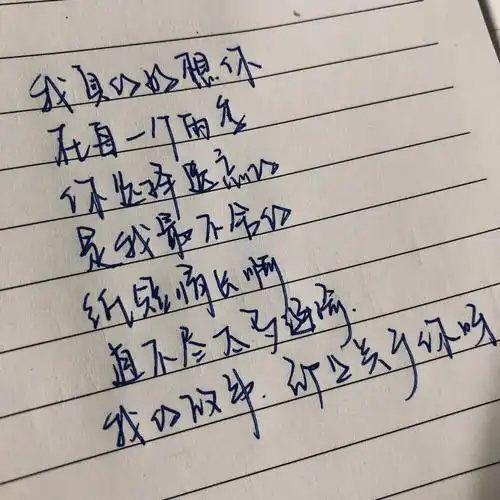 我真的好想你
在每一个雨季
你选择遗忘的
是我最不舍的
纸短情长啊
道不尽太多涟漪.
我的故事.都是关于你呀